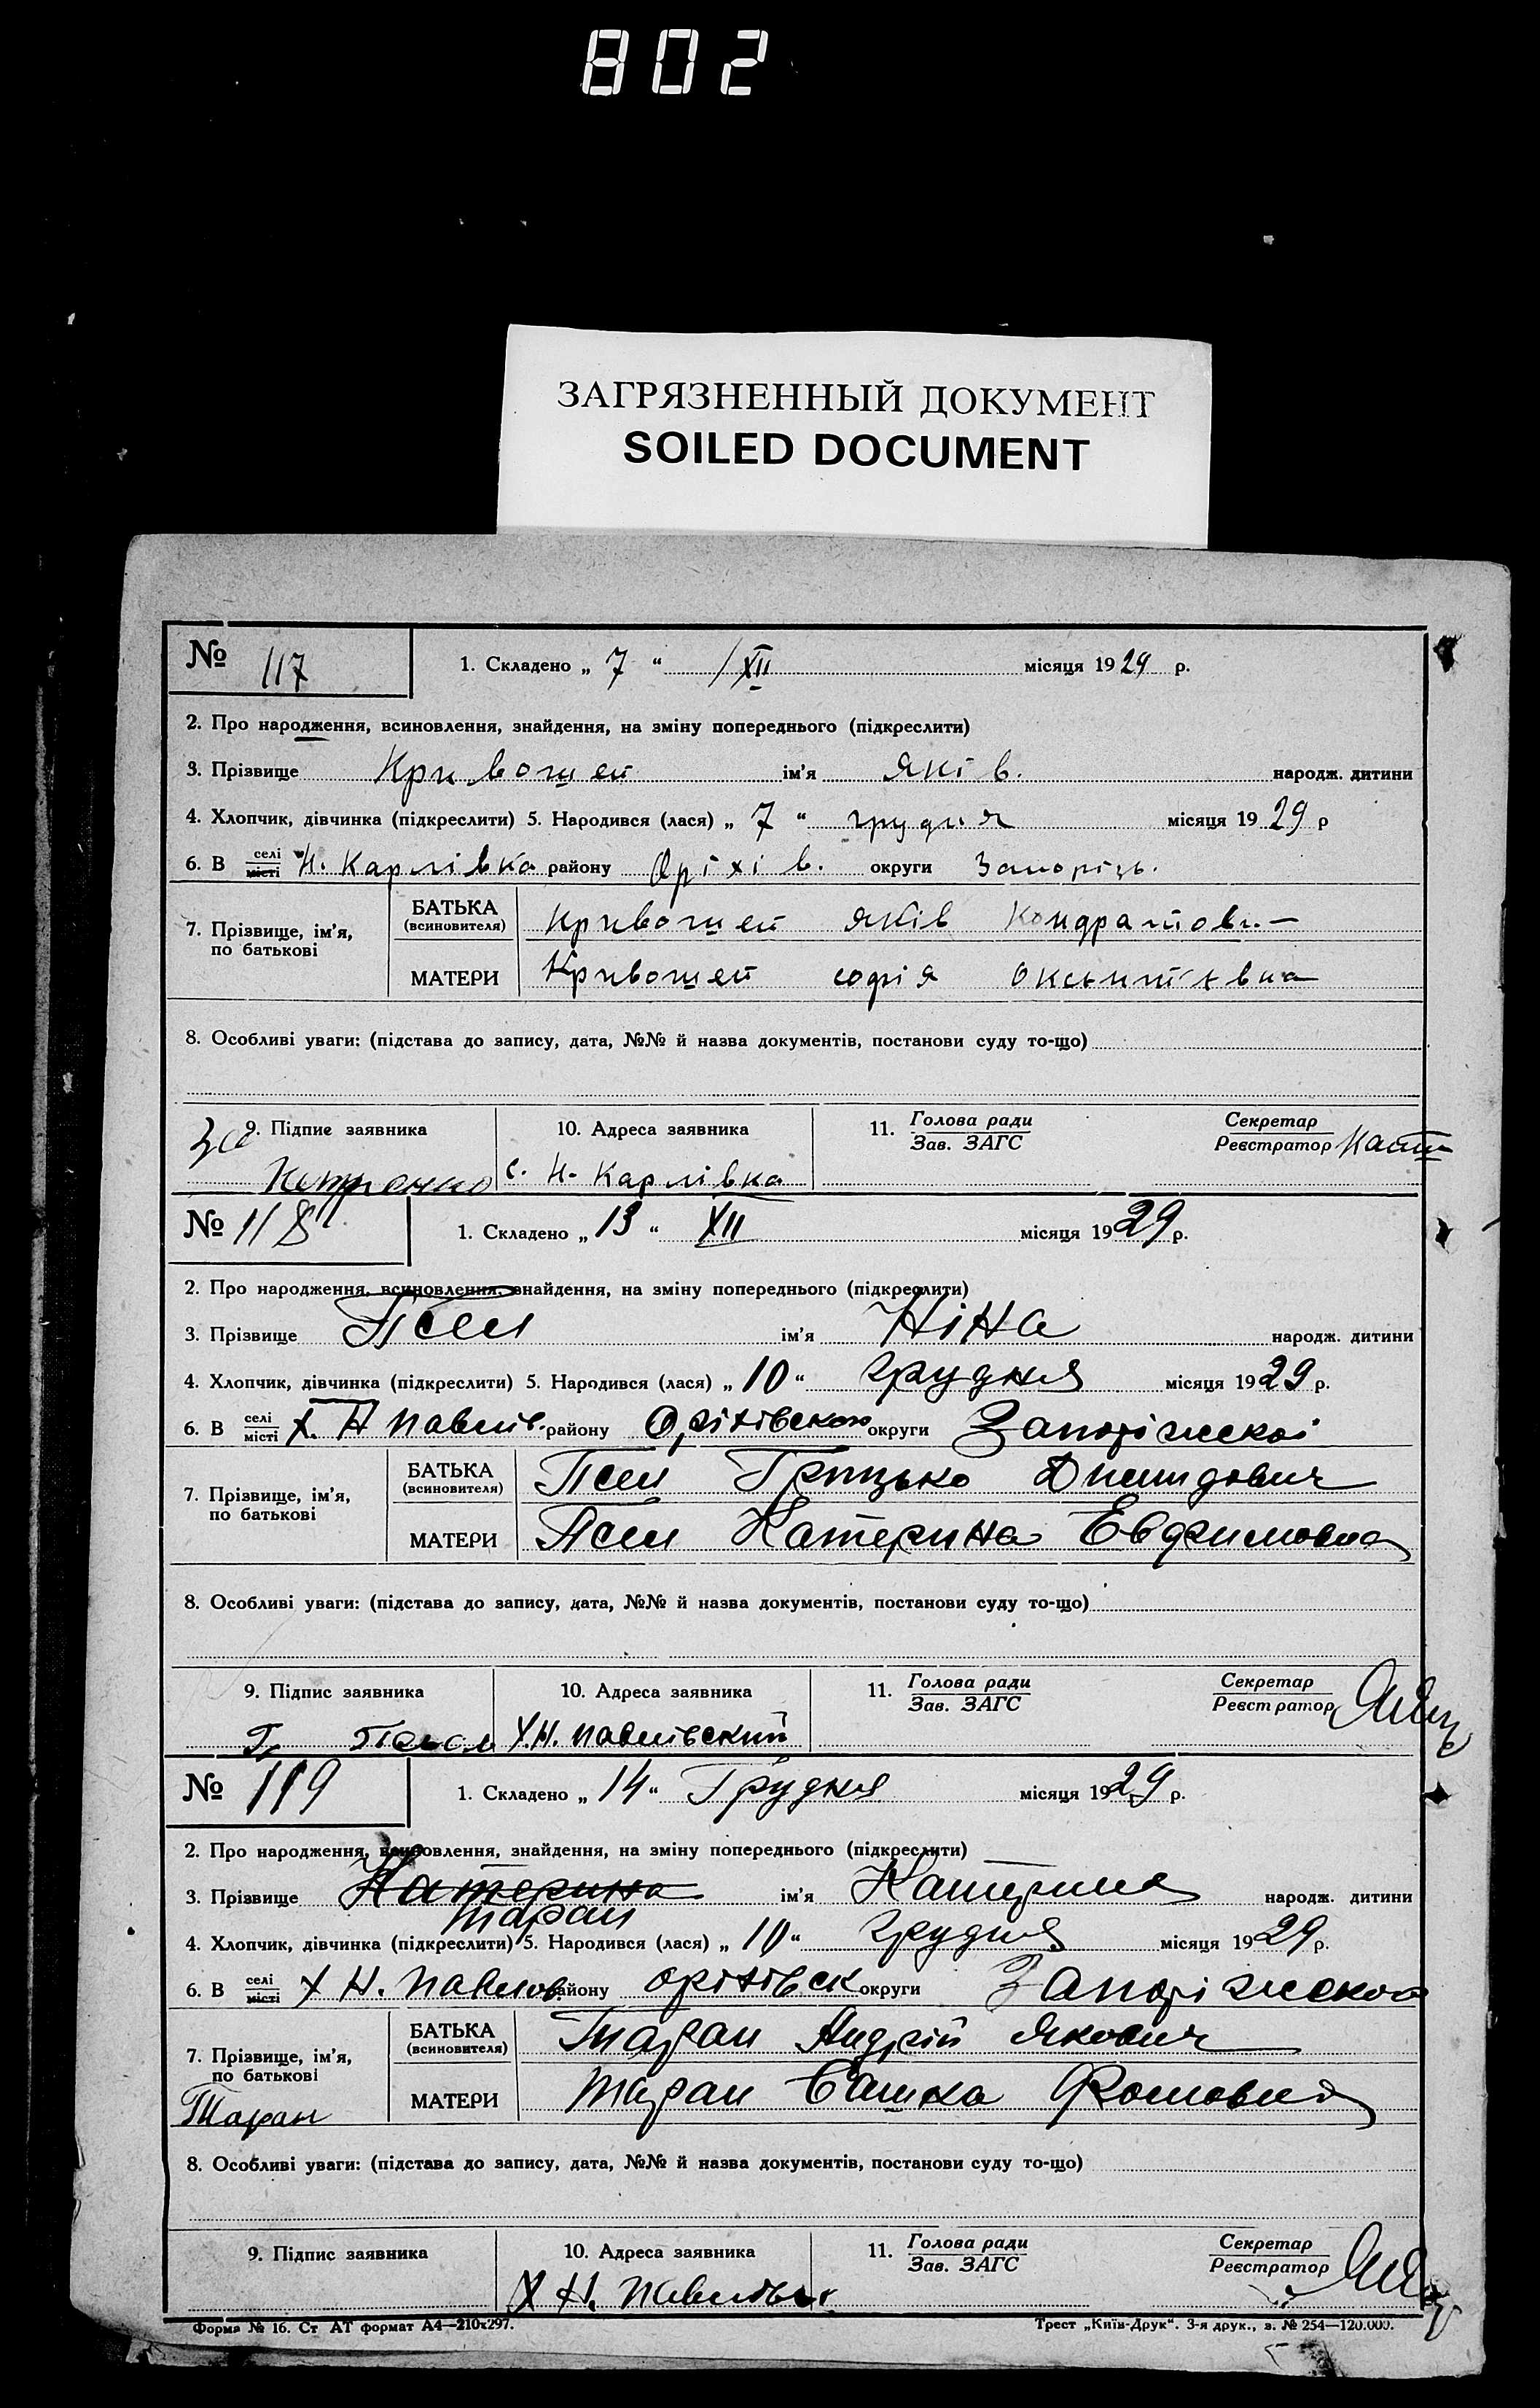 802
ЗАГРЯЗНЕННЫЙ ДОКУМЕНТ
SOILED DOCUMENT
№ 117 1. Складено „ 7 “ / XII місяця 1929 р.
2. Про народження, всиновлення, знайдення, на зміну попереднього (підкреслити)
3. Прізвище Кривошей ім'я Яків. народж. дитини
4. Хлопчик, дівчинка (підкреслити) 5. Народився (лася) „ 7 “ грудня місяця 1929 р
6. В селі місті Н. Карлівка району Оріхів. округи Запорізь.
7. Прізвище, ім'я, по батькові
БАТЬКА (всиновителя) Кривошей Яків Кондратови.-
МАТЕРИ Кривошей софія
8. Особливі уваги: (підстава до запису, дата, №№ й назва документів, постанови суду то-що)
9. Підпис заявника 10. Адреса заявника 11. Голова ради Зав. ЗАГС Секретар Реєстратор
с. Н. Карлівка
№ 118 1. Складено „ 13 “ XII місяця 1929 р.
2. Про народження, всиновлення, знайдення, на зміну попереднього (підкреслити)
3. Прізвище Псел ім'я Ніна народж. дитини
4. Хлопчик, дівчинка (підкреслити) 5. Народився (лася) „ 10 “ грудня місяця 1929 р.
6. В селі місті Х. Н Павлів. району Оріхівского округи Запоріжскоі
7. Прізвище, ім'я, по батькові
БАТЬКА (всиновителя) Псел Грицько
МАТЕРИ Псел Катерина
8. Особливі уваги: (підстава до запису, дата, №№ й назва документів, постанови суду то-що)
9. Підпис заявника 10. Адреса заявника 11. Голова ради Зав. ЗАГС Секретар Реєстратор
Х.Н. Павлівский
№ 119 1. Складено „ 14 “ Грудня місяця 1929 р.
2. Про народження, всиновлення, знайдення, на зміну попереднього (підкреслити)
3. Прізвище Катерина ім'я Катерина народж. дитини
Таран
4. Хлопчик, дівчинка (підкреслити) 5. Народився (лася) „ 10 “ грудня місяця 1929 р.
6. В селі місті Х Н. Павлов. району Оріхівск округи Запоріжскоі
7. Прізвище, ім'я, по батькові
Таран
БАТЬКА (всиновителя) Таран Андрій Якович
МАТЕРИ Таран Сашка Фомовна
8. Особливі уваги: (підстава до запису, дата, №№ й назва документів, постанови суду то-що)
9. Підпис заявника 10. Адреса заявника 11. Голова ради Зав. ЗАГС Секретар Реєстратор
Х Н.
Форма № 16. Ст АТ формат А4—210х297. Трест „Київ-Друк“. 3-я друк., з. № 254—120.000.